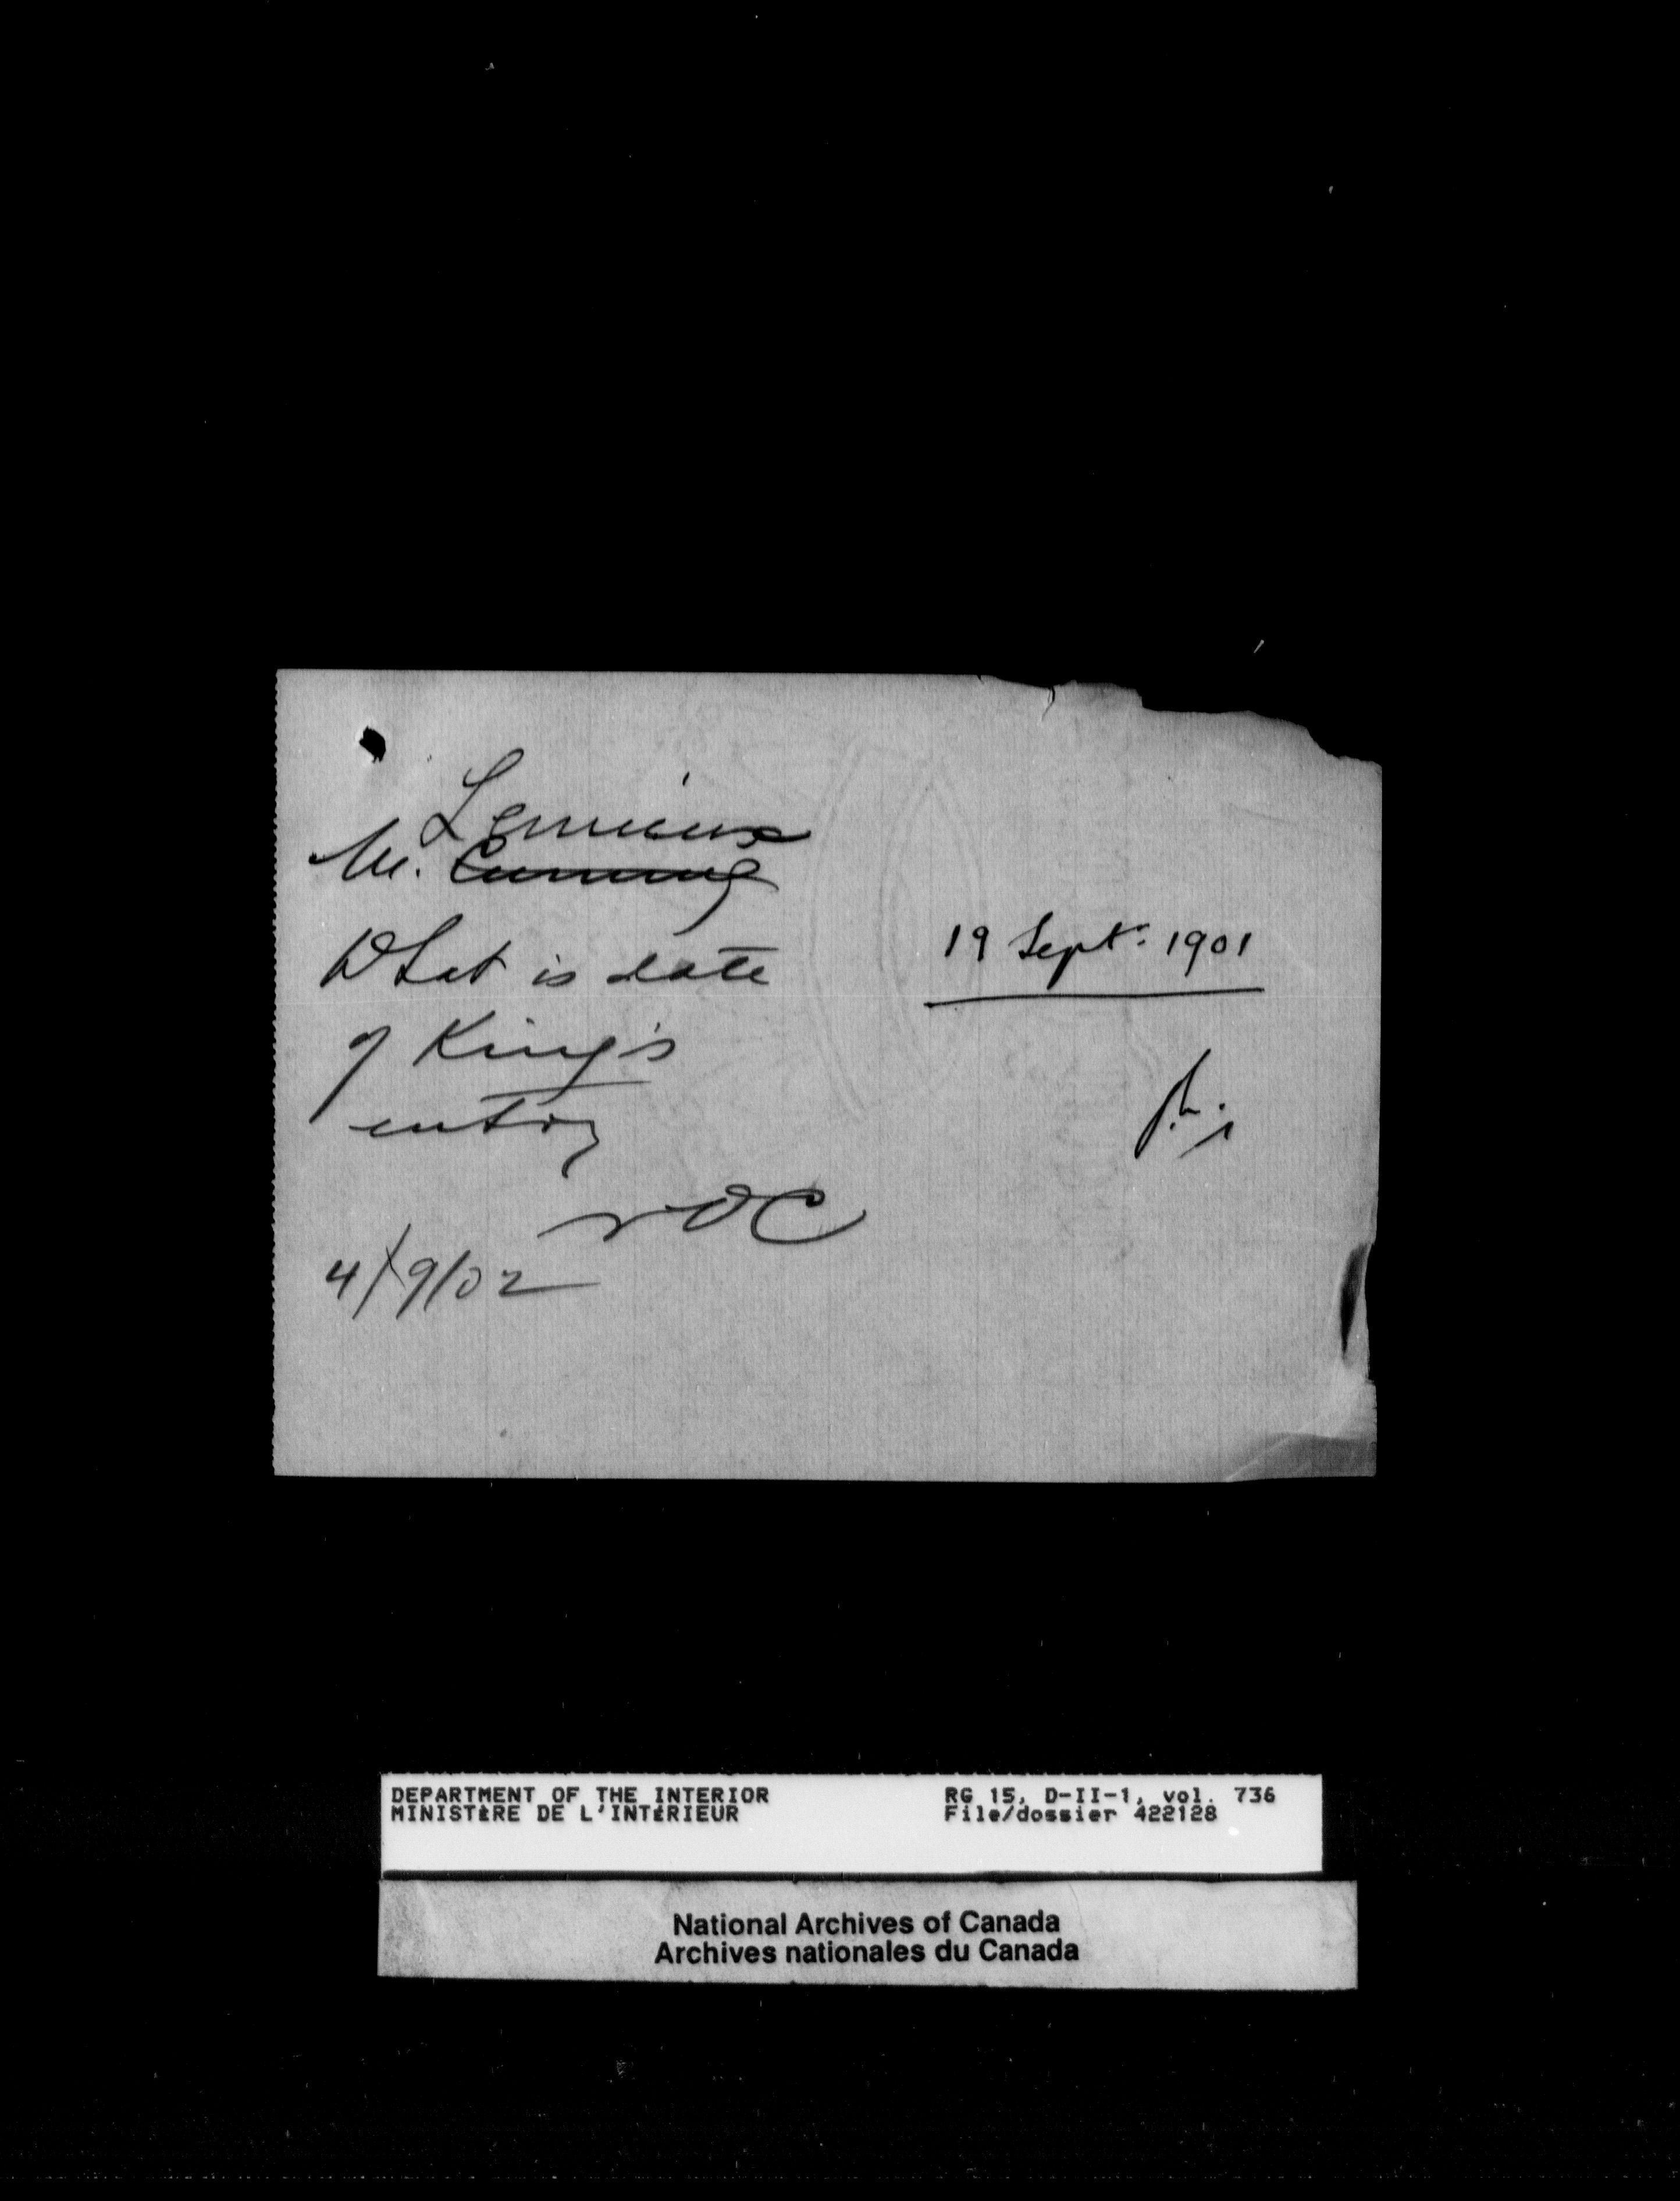 Lemieux
Mr. Cumming
What is date
of King's
entry
19 Sept. 1901
4/9/02
DEPARTMENT OF THE INTERIOR
MINISTÈRE DE L'INTÉRIEUR
RG 15, D-II-1, vol. 736
File/dossier 422128
National Archives of Canada
Archives nationales du Canada